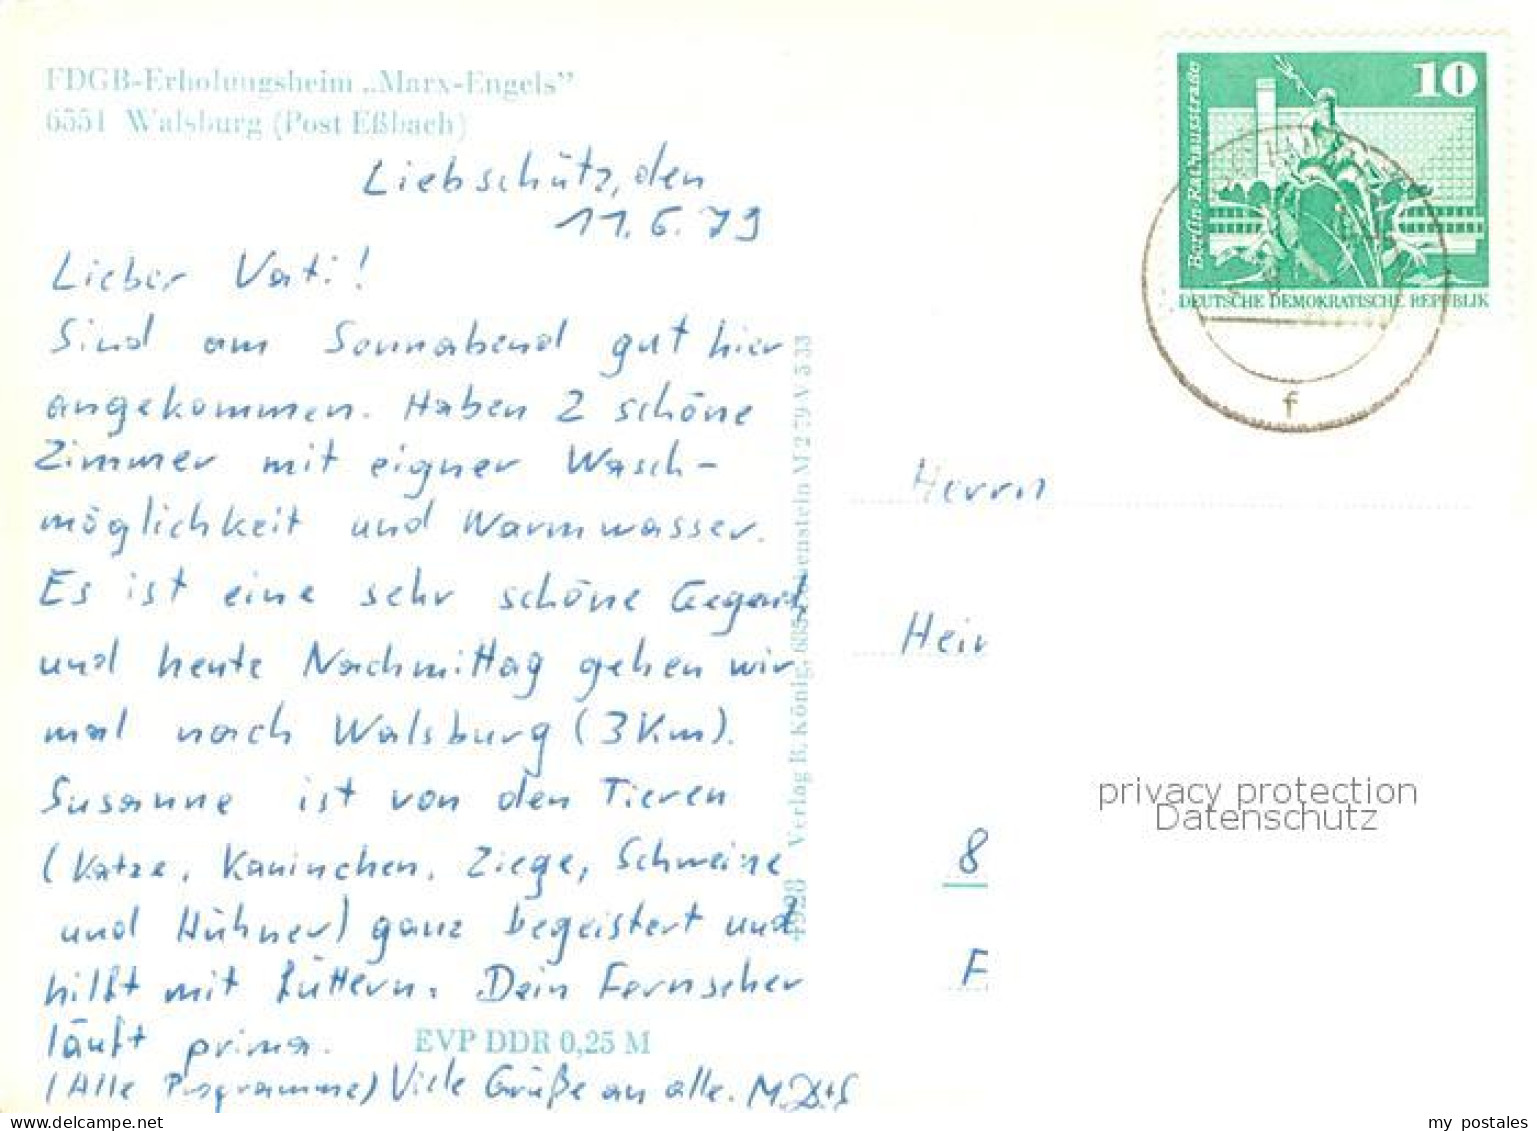 FDGB-Erholungsheim „Marx-Engels”
6551 Walsburg (Post Eßbach)
Liebschütz, den
11.6.79
Lieber Vati!
Sind am Sonnabend gut hier
angekommen. Haben 2 schöne
Zimmer mit eigner Wasch-
möglichkeit und Warmwasser.
Es ist eine sehr schöne Gegend
und heute Nachmittag gehen wir
mal nach Walsburg (3 Km).
Susanne ist von den Tieren
(Katze, Kaninchen, Ziege, Schweine
und Hühner) ganz begeistert und
hilft mit füttern. Dein Fernseher
läuft prima.
(Alle Programme) Viele Grüße an alle. M.D+S
EVP DDR 0,25 M
4928 Verlag B. König, 685 Lobenstein M 2 79 V 5 33
10
Berlin-Rathausstraße
DEUTSCHE DEMOKRATISCHE REPUBLIK
f
Herrn
Hein
8
F
privacy protection
Datenschutz
my postales